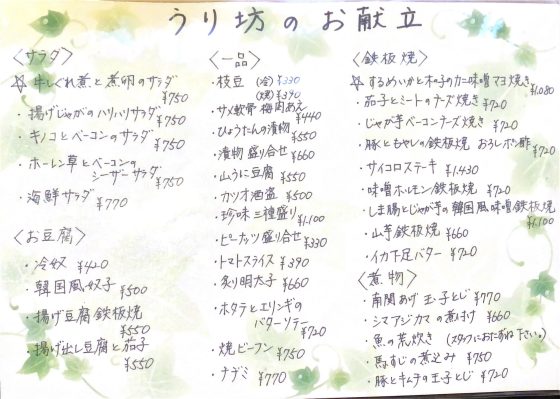 うり坊のお献立
〈サラダ〉
☆牛しぐれ煮と煮卵のサラダ
¥750
・揚げじゃがのハリハリサラダ
¥750
・キノコとベーコンのサラダ
¥750
・ホーレン草とベーコンの
シーザーサラダ
¥750
・海鮮サラダ ¥770
〈お豆腐〉
・冷奴 ¥420
・韓国風奴子
¥500
・揚げ豆腐鉄板焼
¥550
・揚げ出し豆腐と茄子
¥550
〈一品〉
・枝豆 (冷)¥330
(焼)¥390
・サメ軟骨 梅肉あえ
¥440
・ひょうたんの漬物
¥550
・漬物盛り合せ ¥660
・山うに豆腐 ¥550
・カツオ酒盗 ¥500
・珍味三種盛り
¥1,100
・ピーナッツ盛り合せ
¥330
・トマトスライス ¥390
・炙り明太子 ¥660
・ホタテとエリンギの
バターソテー
¥720
・焼ビーフン ¥750
・ナゲミ ¥770
〈鉄板焼〉
☆するめいかと木の子のカニ味噌マヨ焼き
¥1,080
・茄子とミートのチーズ焼き ¥720
・じゃが芋ベーコンチーズ焼き ¥720
・豚ともやしの鉄板焼 おろしポン酢
¥720
・サイコロステーキ ¥1,430
・味噌ホルモン鉄板焼 ¥720
・しま腸とじゃが芋の韓国風味噌鉄板焼
¥1,100
・山芋鉄板焼 ¥660
・イカ下足バター ¥720
〈煮物〉
・南関あげ玉子とじ ¥770
・シマアジカマの煮付け ¥660
・魚の荒炊き (スタッフにおたずね下さい。)
・馬すじの煮込み ¥750
・豚とキムチの玉子とじ ¥720